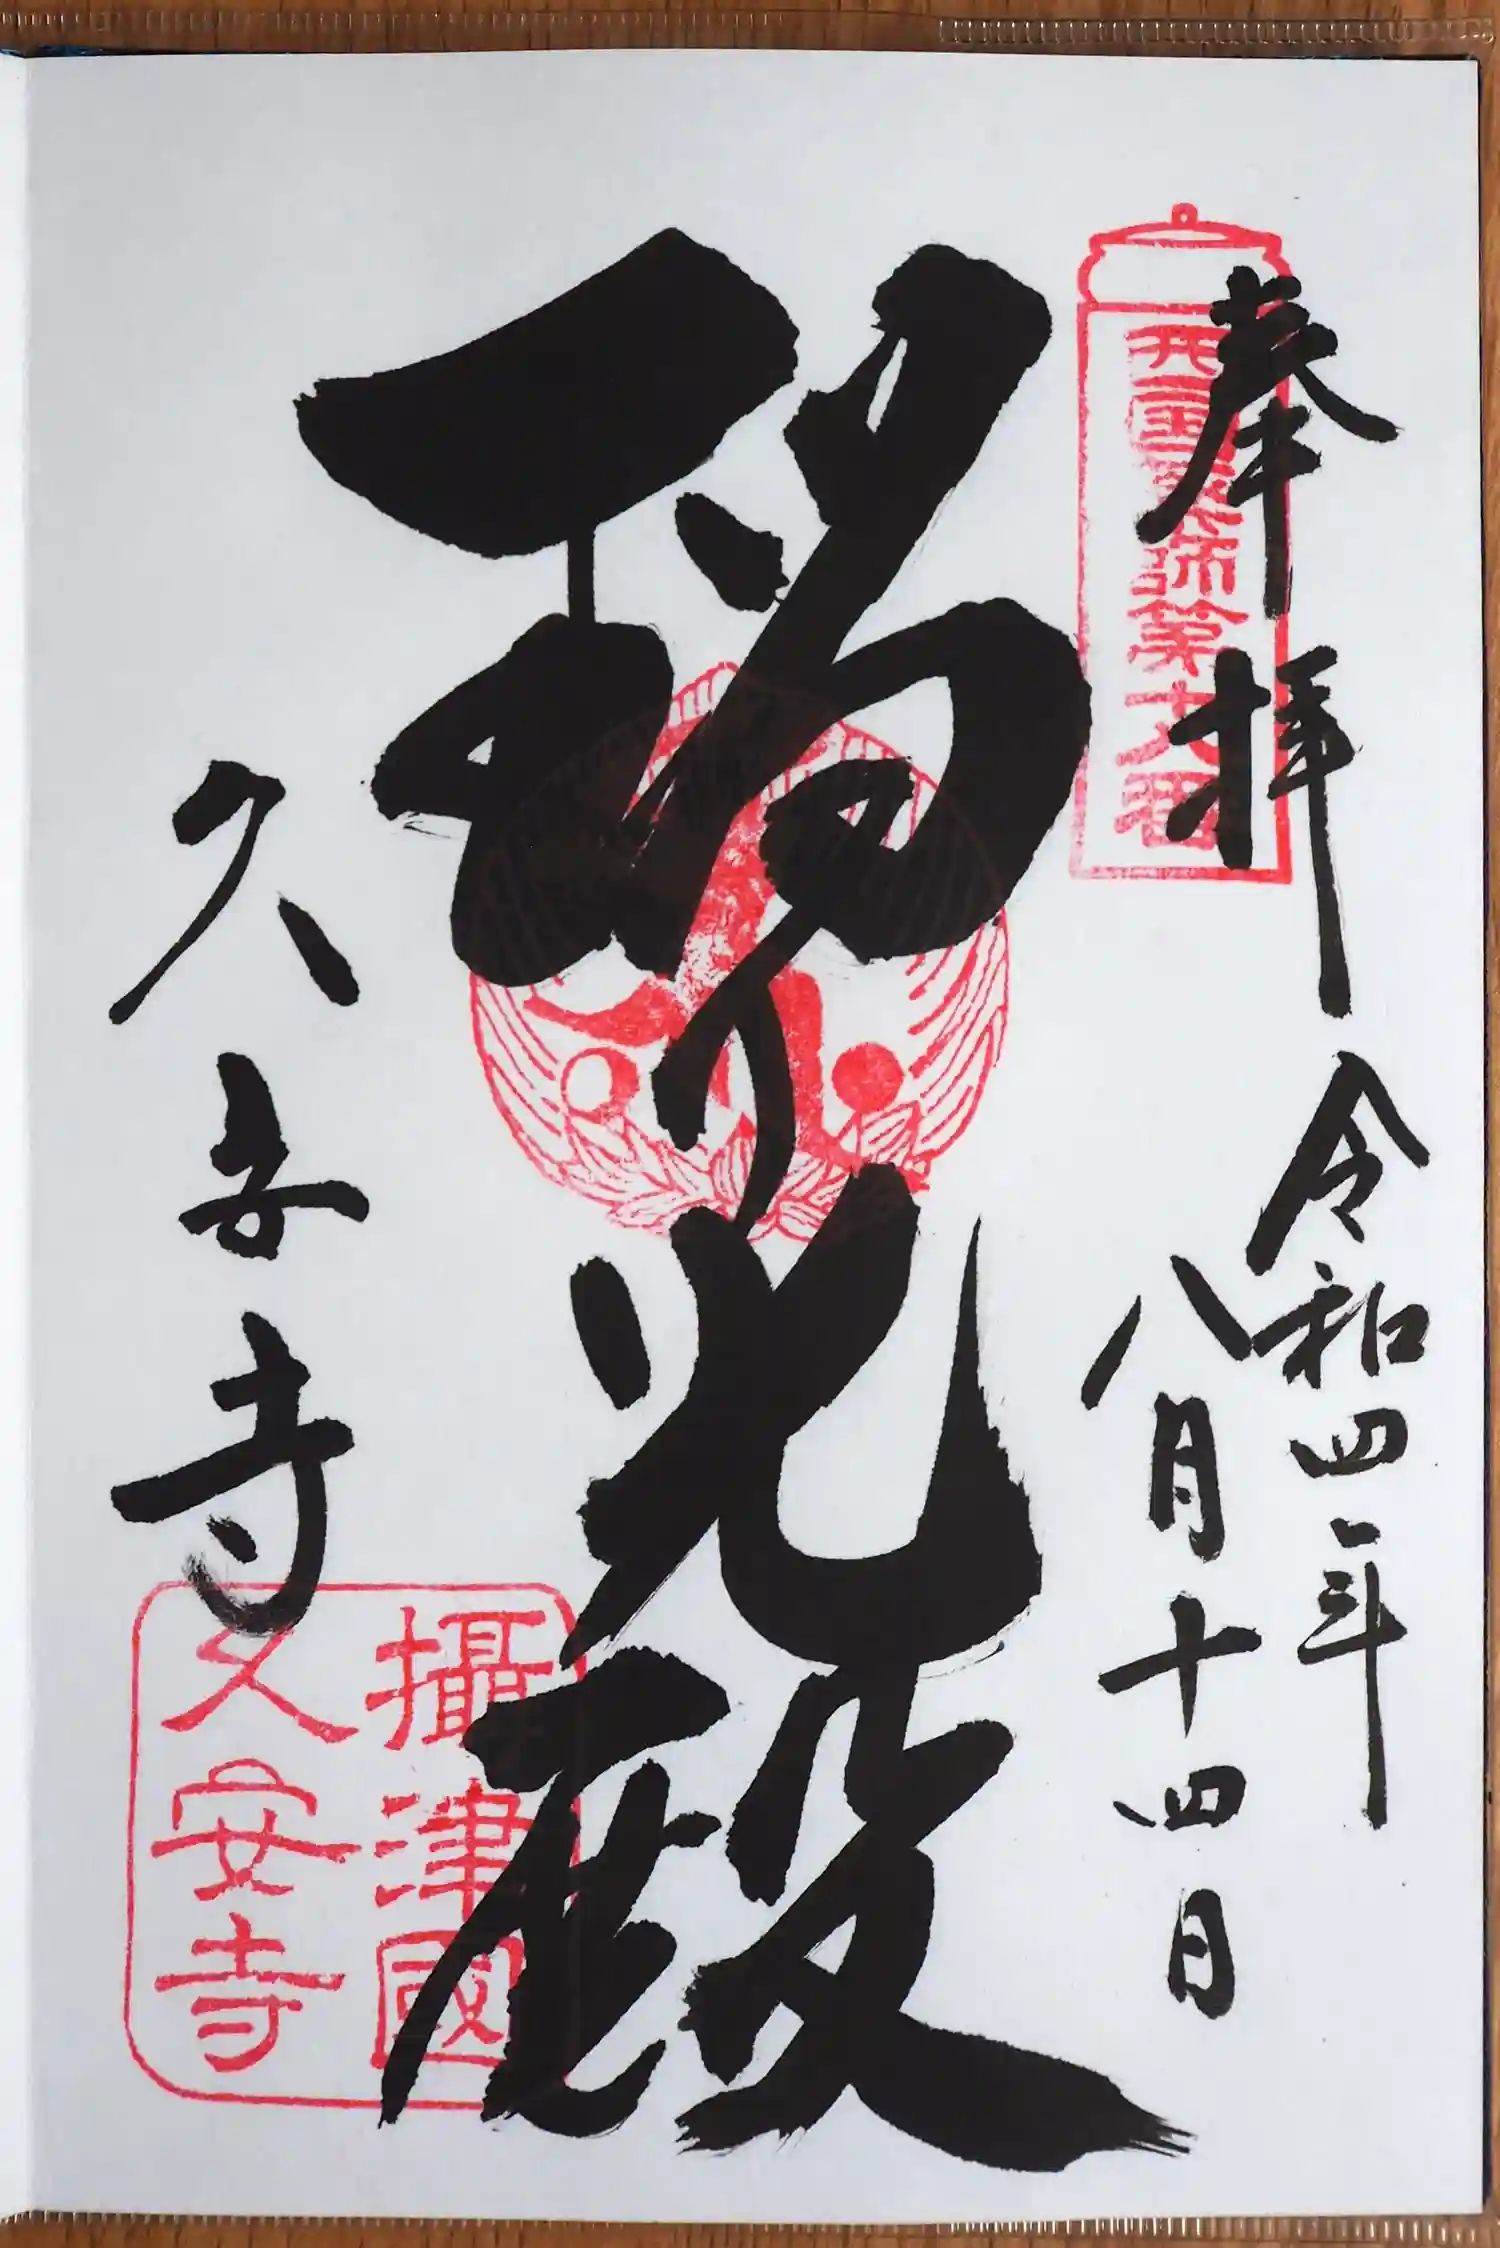 奉拝
西国薬師第十八番
令和四年
八月十四日
瑠り光殿
久安寺
攝津國
久安寺